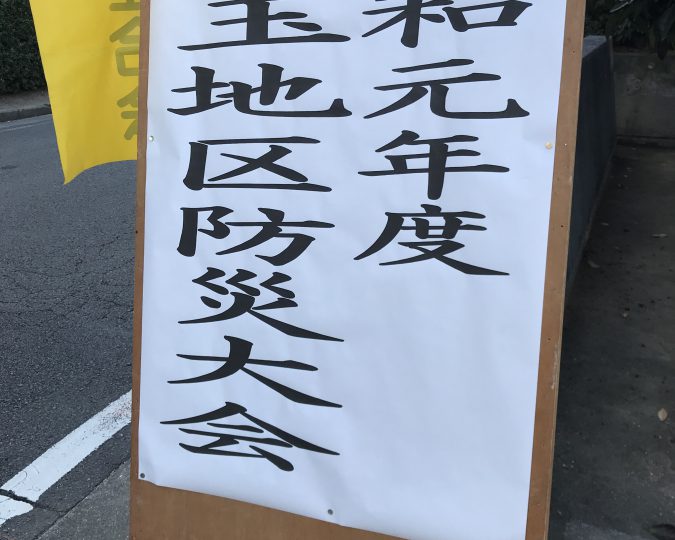 和元年度
玉地区防災大会